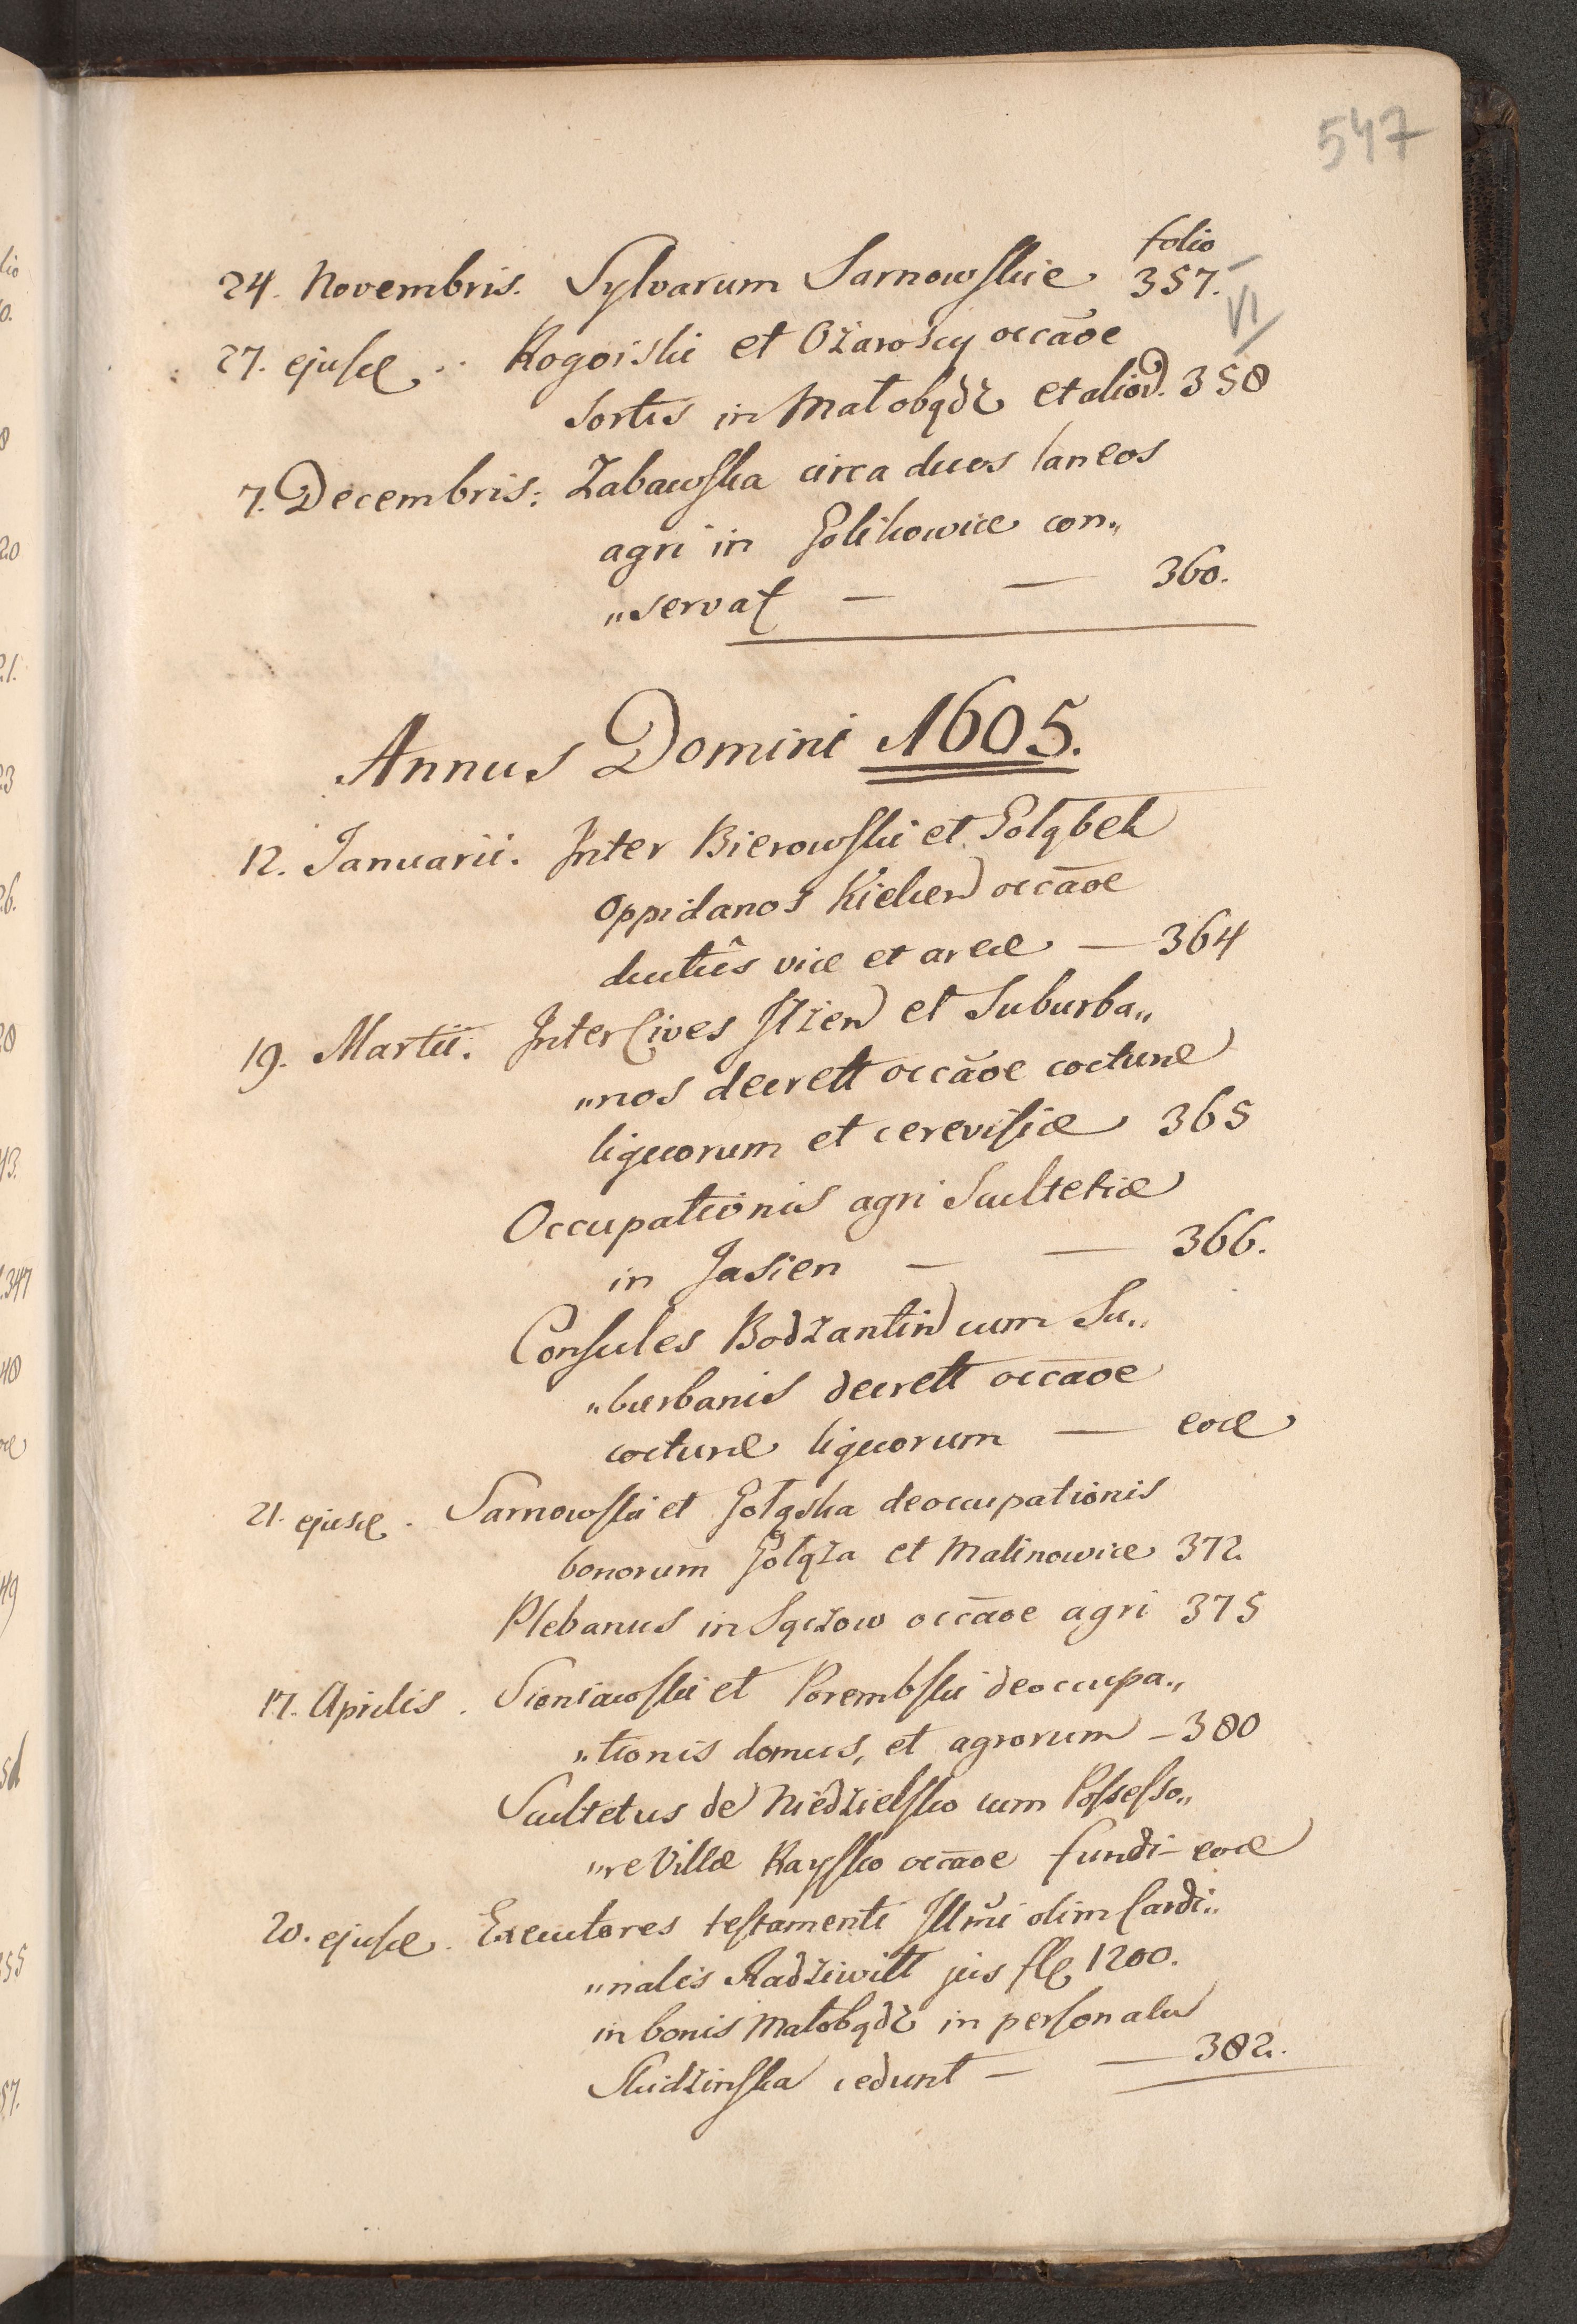 547
folio
24. Novembris. Sylvarum Sarnowskie 357.
VI
27. ejusd. Rogoiski et Ożaroscy occāoe
sortis in Małobądz et aliod. 358
7. Decembris: Zabawska circa duos laneos
agri in Golikowice con„
„servat — — 360.
Annus Domini 1605.
12. Januarii. Inter Bierowski et Gołąbek
oppidanos Kielcen occāoe
ductûs viæ et areæ — 364
19. Martii. Inter Cives Iłżen et Suburba„
„nos decrett occāoe cocturæ
liquorum et cerevisiæ 365
Occupationis agri Scultetiæ
in Jasien — — 366.
Consules Bodzantin cum Su„
„burbanis decrett occāoe
cocturæ liquorum — eod
21. ejusd. Sarnowski et Gołąska deoccupationis
bonorum Gołąza et Malinowice 372
Plebanus in Sączow occāoe agri 375
17. Aprilis. Sieniawski et Porembski deoccupa„
„tionis domus, et agrorum — 380
Scultetus de Niedzielsko cum Possesso„
„re Villæ Raysko occāoe fundi — eod
20. ejusd. Executores testamenti Illmi olim Cardi„
„nalis Radziwiłł jus fl. 1200.
in bonis Małobądz in personalu
Skidzinska cedunt — — 382.